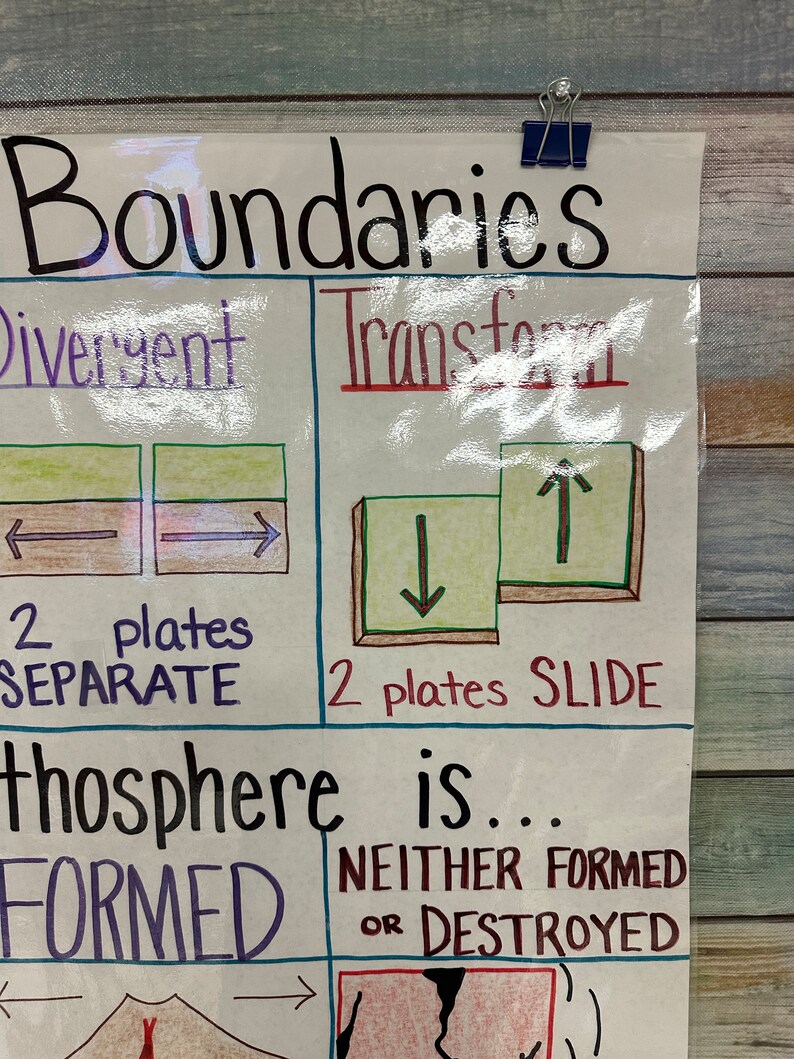 Boundaries
Divergent
Transform
2 plates
SEPARATE
2 plates SLIDE
thosphere is...
FORMED
NEITHER FORMED
OR DESTROYED